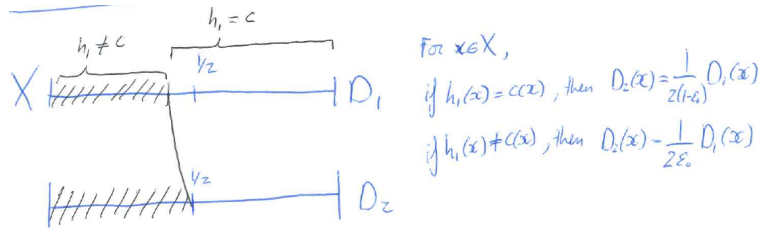 h₁ = c
h₁ ≠ c
1/2
X D₁
1/2
D₂
For x∈X,
if h₁(x) = c(x), then D₂(x) = 1/(2(1-ε₀)) D₁(x)
if h₁(x) ≠ c(x), then D₂(x) = 1/(2ε₀) D₁(x)